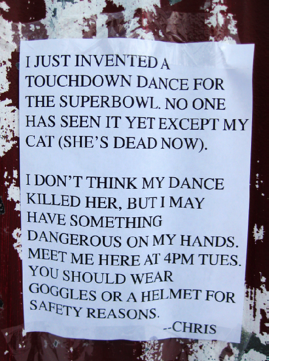 I JUST INVENTED A
TOUCHDOWN DANCE FOR
THE SUPERBOWL. NO ONE
HAS SEEN IT YET EXCEPT MY
CAT (SHE'S DEAD NOW).
I DON'T THINK MY DANCE
KILLED HER, BUT I MAY
HAVE SOMETHING
DANGEROUS ON MY HANDS.
MEET ME HERE AT 4PM TUES.
YOU SHOULD WEAR
GOGGLES OR A HELMET FOR
SAFETY REASONS.
--CHRIS